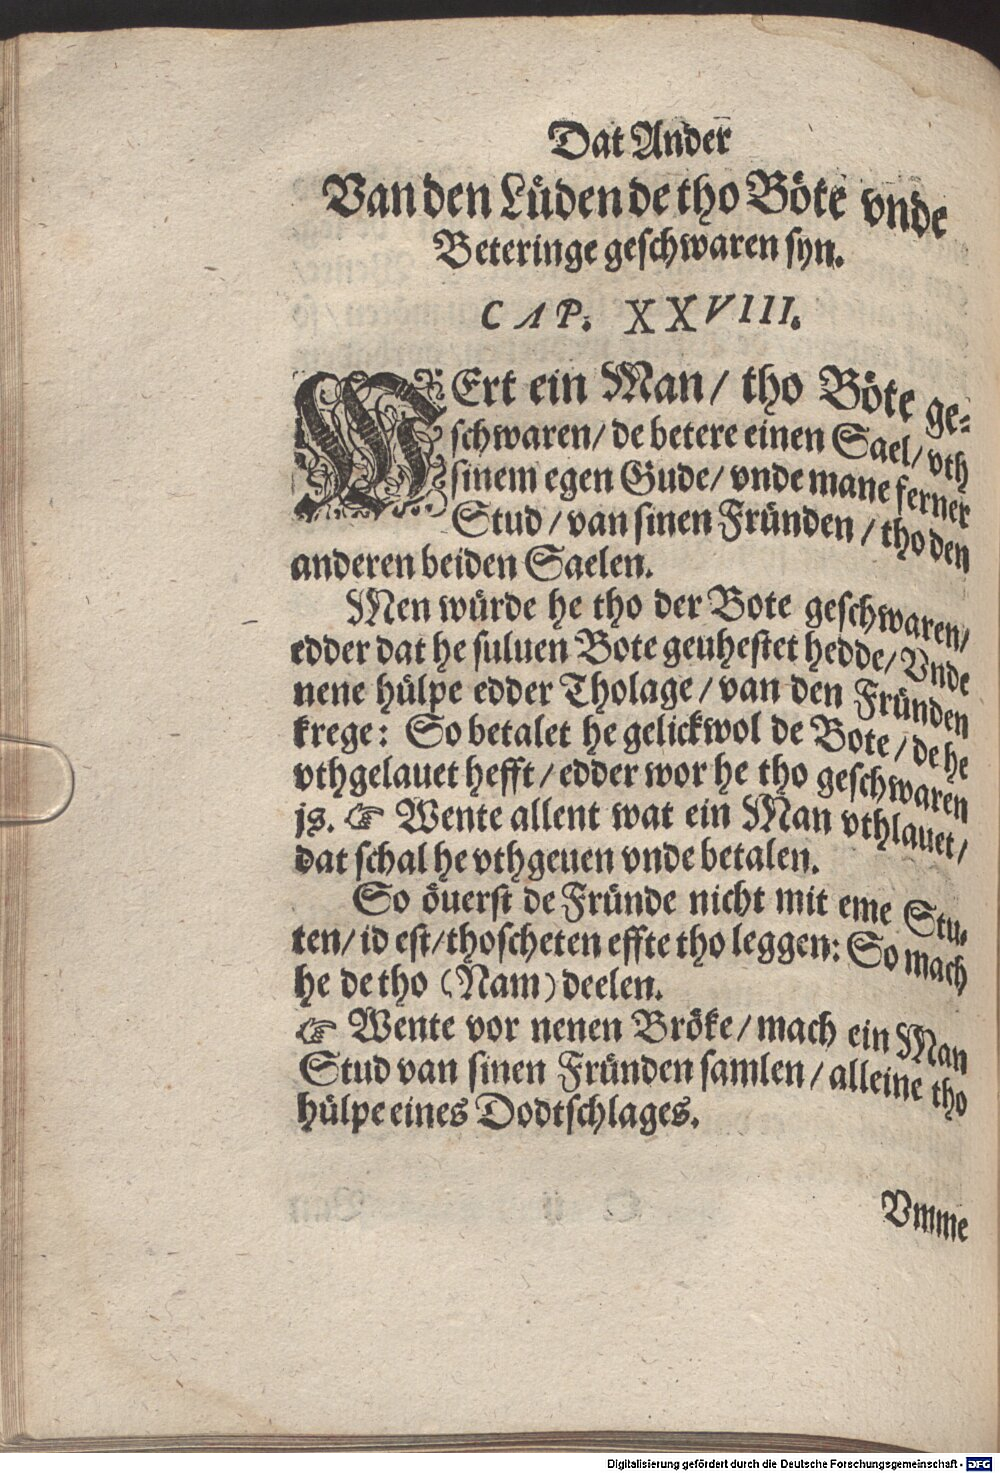 Dat Ander
Van den Lüden de tho Böte vnde
Beteringe geschwaren syn.
CAP. XXVIII.
WErt ein Man/ tho Böte ge-
schwaren/ de betere einen Sael/ vth
sinem egen Gude/ vnde mane ferner
Stud/ van sinen Fründen/ tho den
anderen beiden Saelen.
Men würde he tho der Bote geschwaren/
edder dat he suluen Bote geuhestet hedde/ Vnde
nene hülpe edder Tholage/ van den Fründen
krege: So betalet he gelickwol de Bote/ de he
vthgelauet hefft/ edder wor he tho geschwaren
js. ☞ Wente allent wat ein Man vthlauet/
dat schal he vthgeuen vnde betalen.
So öuerst de Fründe nicht mit eme Stu-
ten/ id est/ thoscheten effte tho leggen: So mach
he de tho (Nam) deelen.
☞ Wente vor nenen Bröke/ mach ein Man
Stud van sinen Fründen samlen/ alleine tho
hülpe eines Dodtschlages.
Vmme
Digitalisierung gefördert durch die Deutsche Forschungsgemeinschaft - DFG